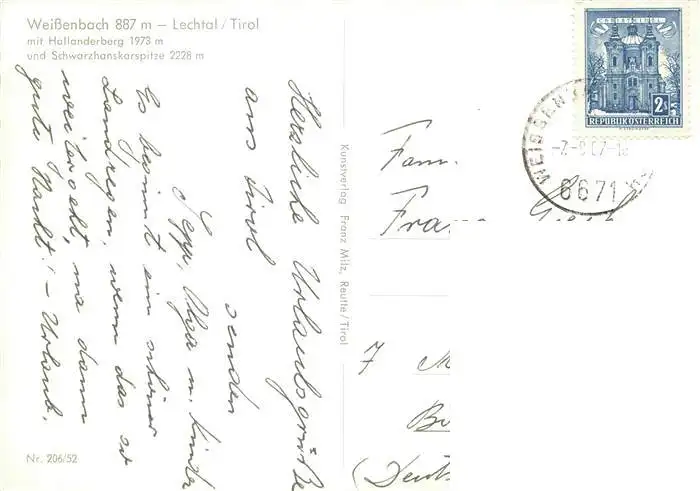 Weißenbach 887 m – Lechtal / Tirol
mit Hallanderberg 1973 m
und Schwarzhanskarspitze 2228 m
Herzliche Urlaubsgrüße
aus Tirol
senden
Sepp, Olga u. Kinder
Es beginnt ein schöner
Landregen, wenn das so
weitergeht, na dann
gute Nacht! – Urlaub.
Nr. 206/52
Kunstverlag Franz Milz, Reutte / Tirol
CHRISTKINDL
2S
REPUBLIK ÖSTERREICH
WEISSEN
6671
Fam.
Fran
7 M
(Deut